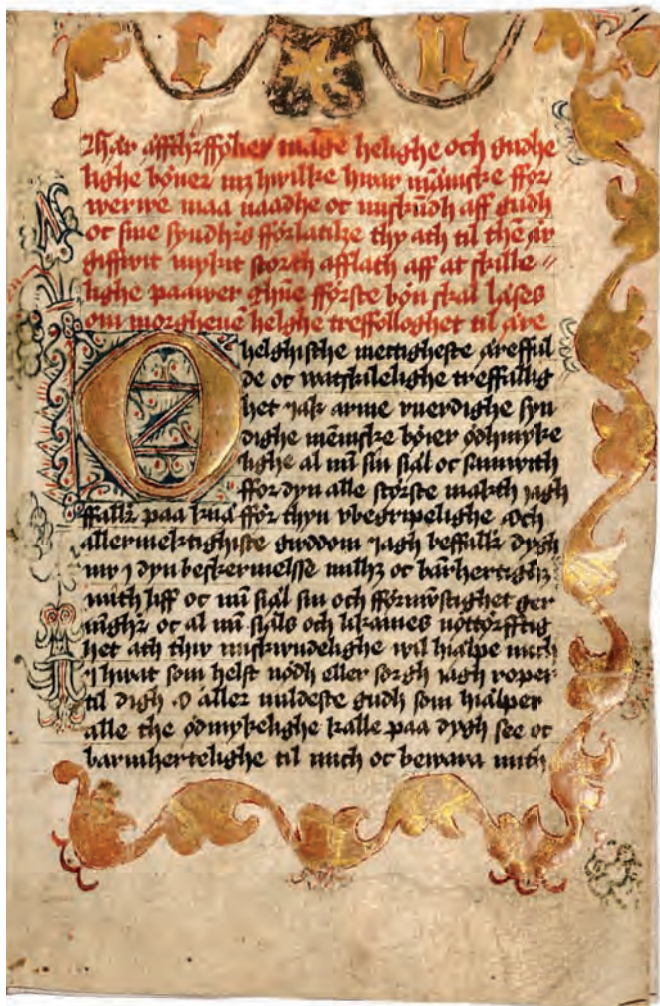 r n
Här äffthr ffölier mãge helighe och gudhe
lighe böner mz hwilke hwar mäniske ffor
werwe maa naadhe oc miskũdh aff gudh
oc sine syndhrs fförlatilze thy ath til thẽ är
giffwit mykit storth afflath aff at skille
lighe paawer Thñe fförste bön skal läses
om morghenẽ helghe treffolloghet til äre
O helghische mectigheste äreffül
de oc watskilelighe treffullig
het Jak arme vuerdighe syn
dighe mẽniske böier ödhmyke
lighe al mĩ sin siäl oc samwith
ffor dyn alle störste makth jagh
ffallr paa knä fför thyn vbegripelighe Och
allermektighiste gwddom Jagh beffallr dygh
my j dyn beskermelsse millz oc bärhertighz
mith liff oc mĩ siäl sin och fförnwstighet ger
nĩghr oc al mĩ siäls och likames nöttörfftig
het ath thw miskwndelighe wil hiälpe mich
J hwat som helst nödh eller sorgh jagh roper
til digh O aller mildeste gudh som hiälper
alle the ödmykelighe kalle paa dygh see oc
barmhertelighe til mich oc bewara mith